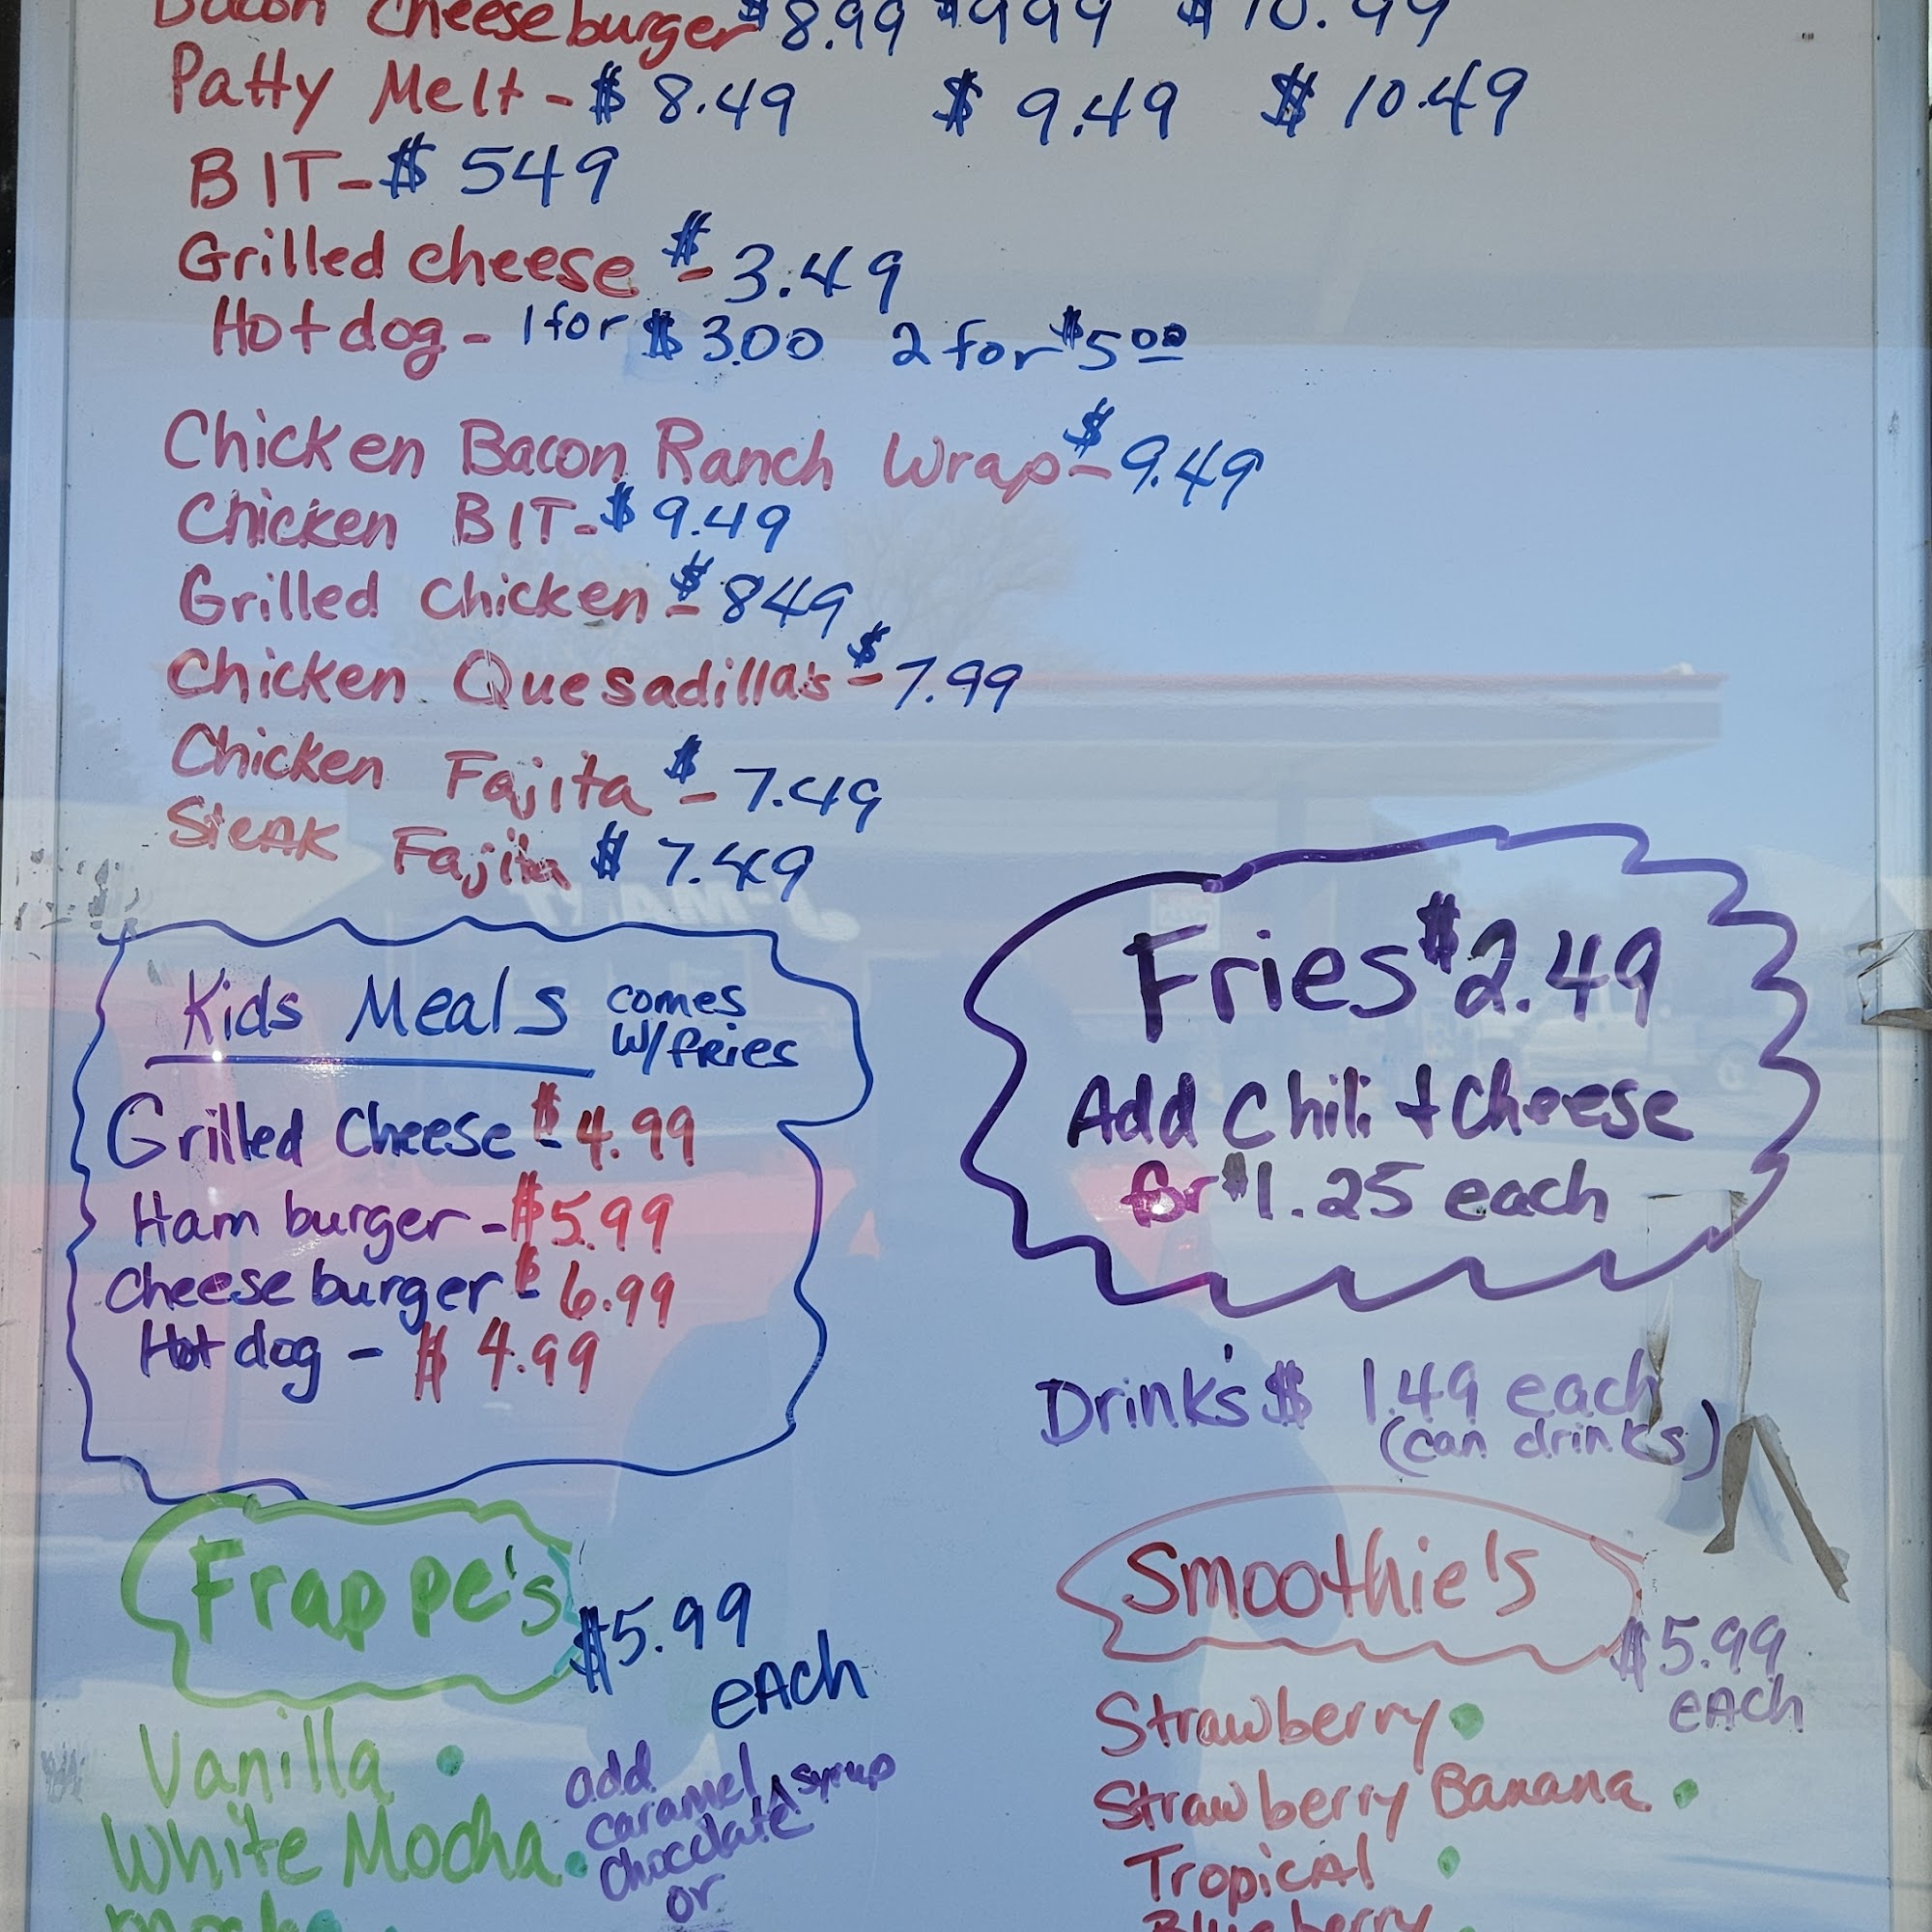 Bacon Cheeseburger $8.99 $999 $10.99
Patty Melt - $8.49 $9.49 $10.49
BIT - $549
Grilled cheese - $3.49
Hotdog - 1 for $3.00 2 for $5 00
Chicken Bacon Ranch Wrap - $9.49
Chicken BIT - $9.49
Grilled Chicken - $849
Chicken Quesadilla's - $7.99
Chicken Fajita - $7.49
Steak Fajita $7.49
Kids Meals comes
w/fries
Grilled Cheese - $4.99
Hamburger - $5.99
Cheeseburger - $6.99
Hot dog - $4.99
Fries $2.49
Add Chili + Cheese
for $1.25 each
Drink's $1.49 each
(can drinks)
Frappe's
$5.99
each
Vanilla
White Mocha
add
caramel syrup
chocolate
or
Smoothie's
$5.99
each
Strawberry
Strawberry Banana
Tropical
Blueberry